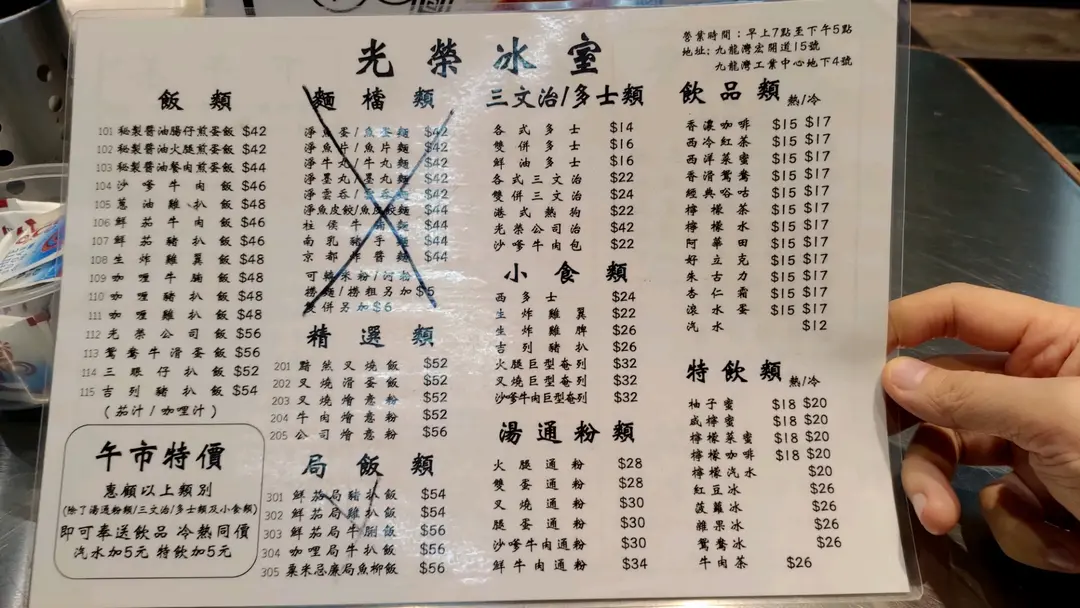 光榮冰室
營業時間：早上7點至下午5點
地址：九龍灣宏開道15號
九龍灣工業中心地下4號
飯類
101 秘製醬油腸仔煎蛋飯 $42
102 秘製醬油火腿煎蛋飯 $42
103 秘製醬油餐肉煎蛋飯 $44
104 沙嗲牛肉飯 $46
105 蔥油雞扒飯 $48
106 鮮茄牛肉飯 $46
107 鮮茄豬扒飯 $48
108 生炸雞翼飯 $48
109 咖喱牛腩飯 $48
110 咖喱豬扒飯 $48
111 咖喱雞扒飯 $48
112 光榮公司飯 $56
113 鴛鴦牛滑蛋飯 $56
114 三眼仔扒飯 $52
115 吉列豬扒飯 $54
（茄汁/咖喱汁）
午市特價
惠顧以上類別
(除了湯通粉類/三文治/多士類及小食類)
即可奉送飲品 冷熱同價
汽水加5元 特飲加5元
麵檔類
淨魚蛋/魚蛋麵 $42
淨魚片/魚片麵 $42
淨牛丸/牛丸麵 $42
淨墨丸/墨丸麵 $42
淨雲吞/雲吞麵 $42
淨魚皮餃/魚皮餃麵 $44
柱侯牛腩麵 $44
南乳豬手麵 $44
京都炸醬麵 $44
可轉米粉/河粉
撈麵/撈粗另加$5
雙併另加$6
精選類
201 黯然叉燒飯 $52
202 叉燒滑蛋飯 $52
203 叉燒燴意粉 $52
204 牛肉燴意粉 $52
205 公司燴意粉 $56
局飯類
301 鮮茄局豬扒飯 $54
302 鮮茄局雞扒飯 $54
303 鮮茄局牛脷飯 $56
304 咖喱局牛扒飯 $56
305 粟米忌廉局魚柳飯 $56
三文治/多士類
各式多士 $14
雙併多士 $16
鮮油多士 $16
各式三文治 $22
雙併三文治 $24
港式熱狗 $22
光榮公司治 $42
沙嗲牛肉包 $22
小食類
西多士 $24
生炸雞翼 $22
生炸雞脾 $26
吉列豬扒 $26
火腿巨型奄列 $32
叉燒巨型奄列 $32
沙嗲牛肉巨型奄列 $32
湯通粉類
火腿通粉 $28
雙蛋通粉 $28
叉燒通粉 $30
腿蛋通粉 $30
沙嗲牛肉通粉 $30
鮮牛肉通粉 $34
飲品類 熱/冷
香濃咖啡 $15 $17
西冷紅茶 $15 $17
西洋菜蜜 $15 $17
香滑鴛鴦 $15 $17
經典谷咕 $15 $17
檸檬茶 $15 $17
檸檬水 $15 $17
阿華田 $15 $17
好立克 $15 $17
朱古力 $15 $17
杏仁霜 $15 $17
滾水蛋 $15 $17
汽水 $12
特飲類 熱/冷
柚子蜜 $18 $20
咸檸蜜 $18 $20
檸檬菜蜜 $18 $20
檸檬咖啡 $18 $20
檸檬汽水 $20
紅豆冰 $26
菠蘿冰 $26
雜果冰 $26
鴛鴦冰 $26
牛肉茶 $26